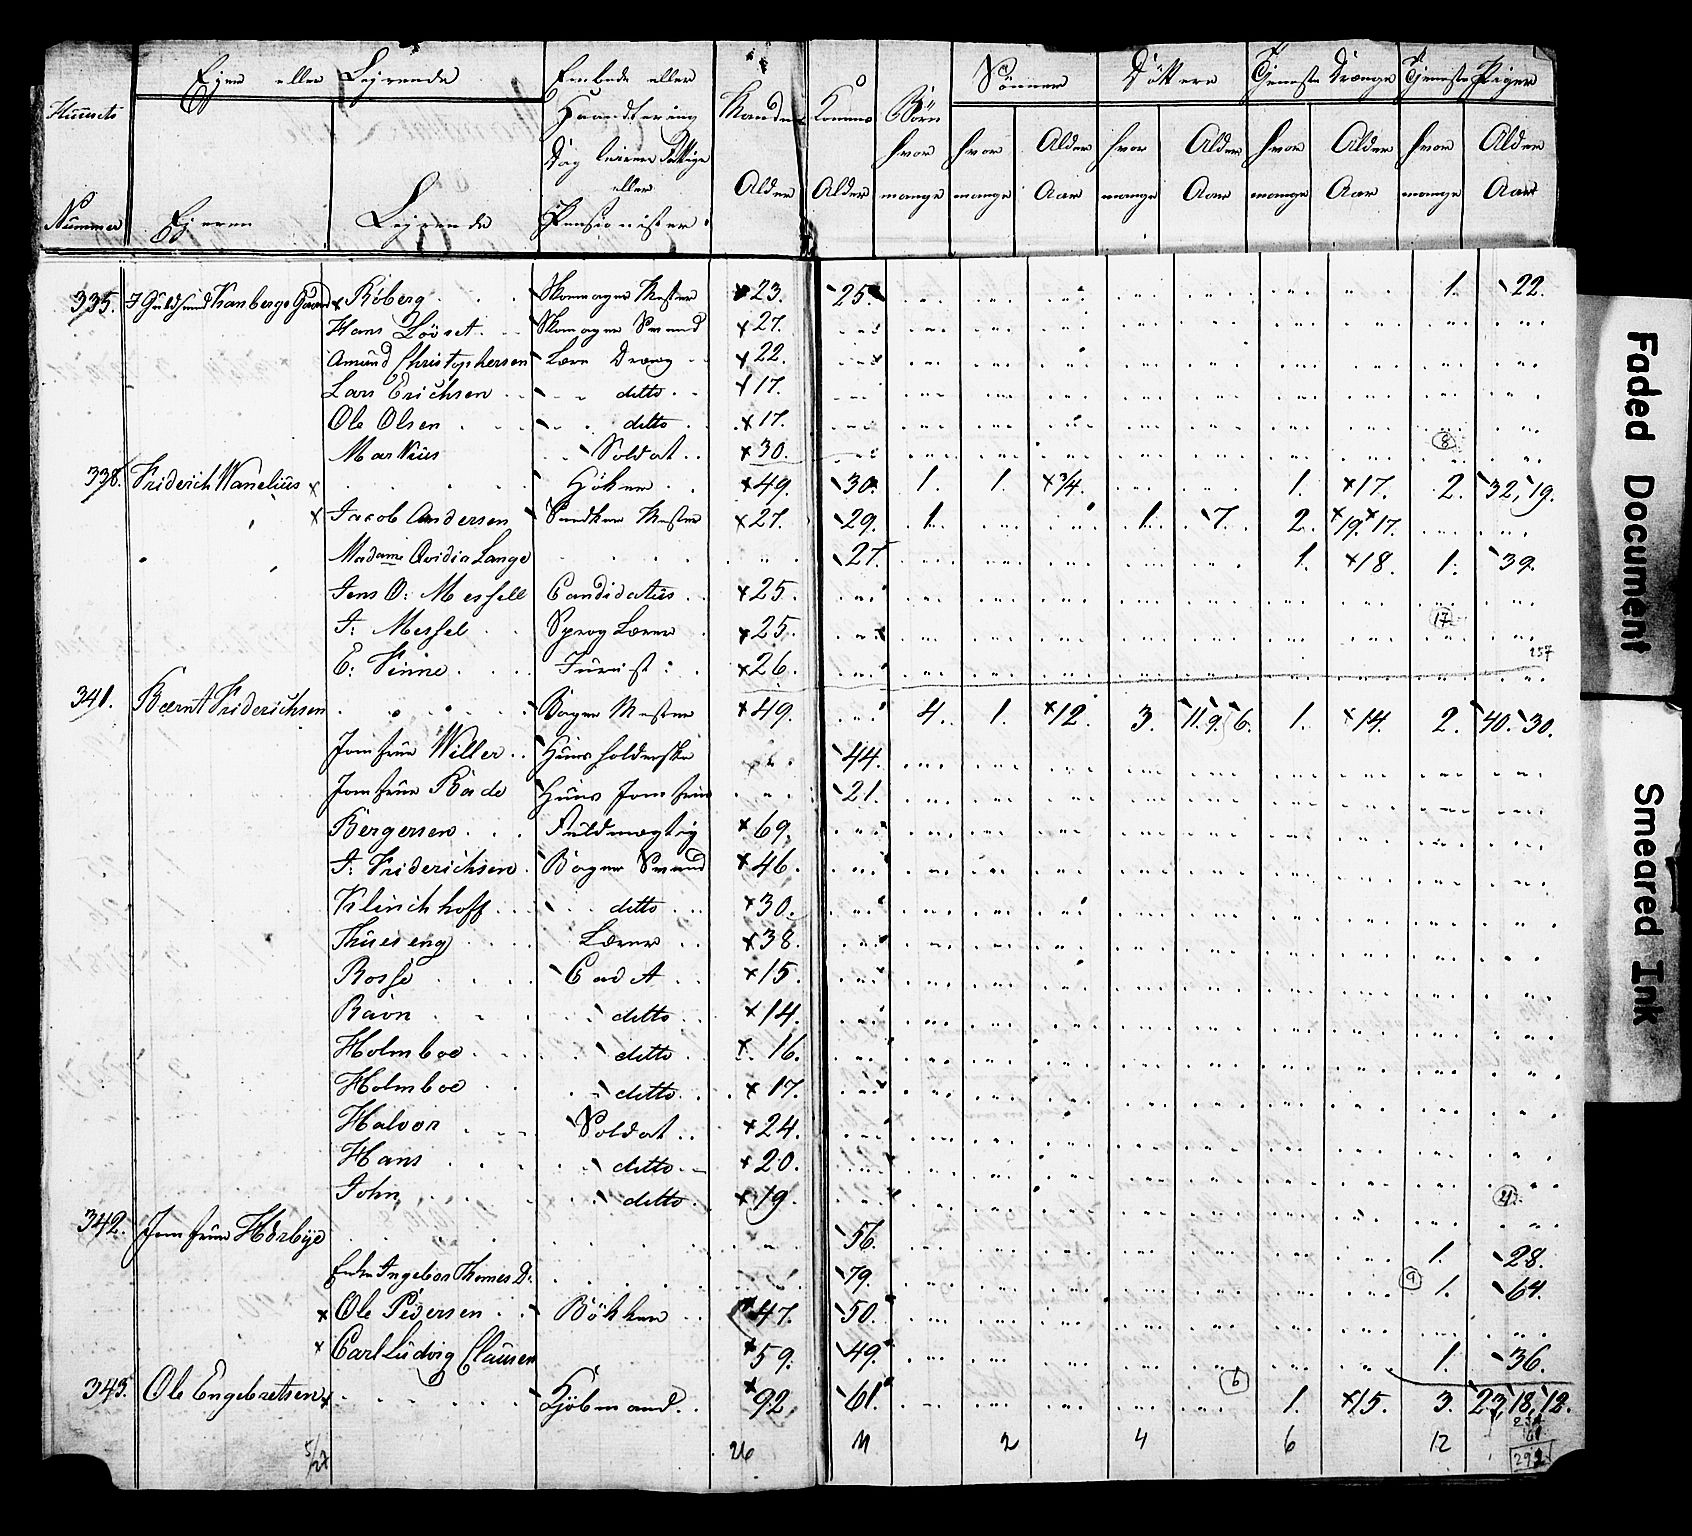 Huusets Nummer | Ejere eller Lejende | Embede eller Haandtering Dag leiere Fattige eller Pensionister | Mandens Alder | Konens Alder | Börn hvor mange | Sönner hvor mange | Alder Aar | Döttere hvor mange | Alder Aar | Tjeneste Drænge hvor mange | Alder Aar | Tjeneste Piger hvor mange | Alder Aar
Ejeren | Lejende
335. Röberg Skomager Mester 23. 25. 1. 22.
Hans Lövset Skomager Svend 27.
Amund Christophersen Lære Dræng 22.
Lars Erichsen ditto 17.
Ole Olsen ditto 17.
Markus Soldat 30. 8
338. Friderich Wanelius Höker 49. 30. 1. 1. 3/4. 1. 17. 2. 32, 19.
Jacob Andersen Snedker Mester 27. 29. 1. 1. 7. 2. 19. 17.
Madame Ovidia Lange 27. 1. 18. 1. 39.
Jens O: Messell Candidatus 25.
J: Messel Sprog Lærer 25. 17
E: Finne Jurist: 26. 257
341. Bærnt Friderichsen Bager Mester 49. 4. 1. 12. 3. 11. 9. 6. 1. 14. 2. 40. 30.
Jomfrue Willer Huusholderske 44.
Jomfrue Bade Huus Jomfrue 21.
Bergersen Fuldmægtig 69.
J: Friderichsen Bager Svend 46.
Klinchhoff ditto 30.
Thueseng Lærer 38.
Rosse Cadet 15.
Ravn ditto 14.
Holmboe ditto 16.
Holmboe ditto 17.
Halvor Soldat 24.
Hans ditto 20.
John ditto 19. 21
342. Jomfrue Hörbye 56. 1. 28.
Enke Ingebor Thomes D. 79. 9 1. 64.
Ole Pedersen Bökker 47. 50.
Carl Ludvig Clausen 59. 49. 1. 36.
343. Ole Engebretsen Kjöbmand 92. 61. 6 1. 15. 3. 23, 18, 12.
5/27 26 11 2 4 6 12 292
Faded Document
Smeared Ink